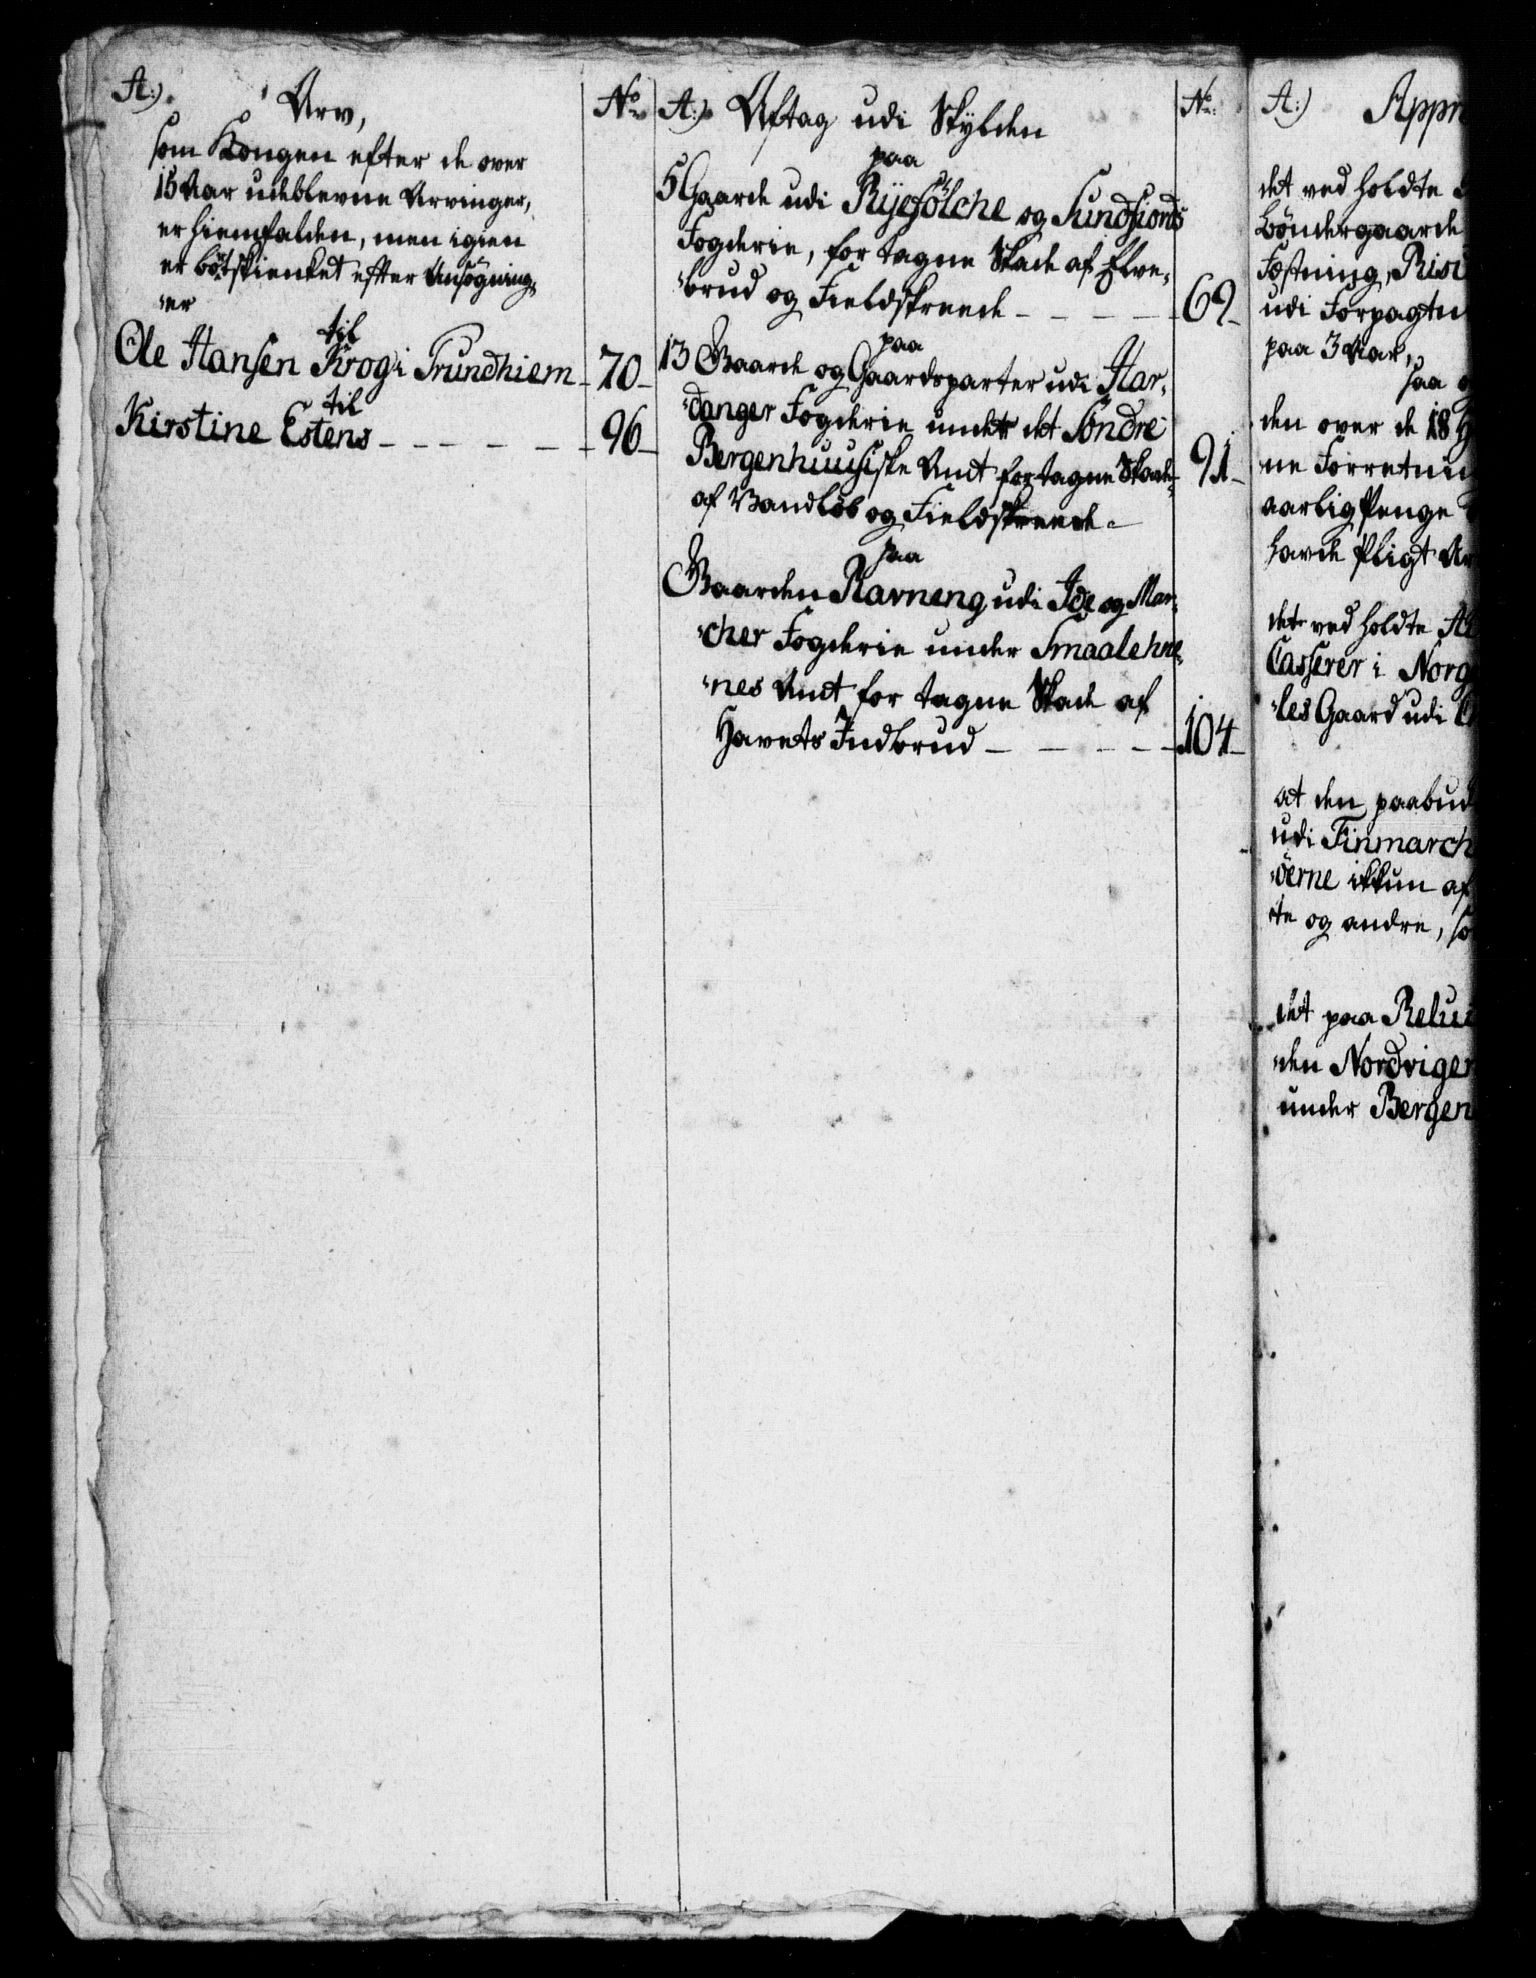 A:)
Arv,
som Kongen efter de over
15 Aar udeblevne Arvinger,
er hiemfalden, men igien
er bortskienket efter Ansøgning,
er
til
Ole Hansen Krog i Trundhiem - 70 -
til
Kirstine Estens - - - - - - 96 -
No
A:) Aftag udi Skylden
No
paa
5 Gaarde udi Ryefölche og Sundfiords
Fogderie, for tagne Skade af Elve,
brud og Fieldskreede - - - - - 69 -
paa
13 Gaarde og Gaardsparter udi Har,
danger Fogderie under det Söndre
Bergenhuusiske Amt for tagne Skade 91 -
af Vandløb og Fieldskreede -
paa
Gaarden Ravneng udi Ide og Mar,
cher Fogderie under Smaalehne,
nes Amt for tagne Skade af
Havets Indbrud - - - - - 104 -
A:) Appr
det ved holdte
Bøndergaarde
Fæstning,
udi Forpagtn
paa 3 Aar,
saa
den over de 18
ne Forretnin
aarlig Penge
havde Pligt
det ved holdte
Casserer i Norg
les Gaard udi
at den paabud
udi Finmarch
öerne ikkun af
te og andre, so
det paa Relui
den Nordviger
under Bergen